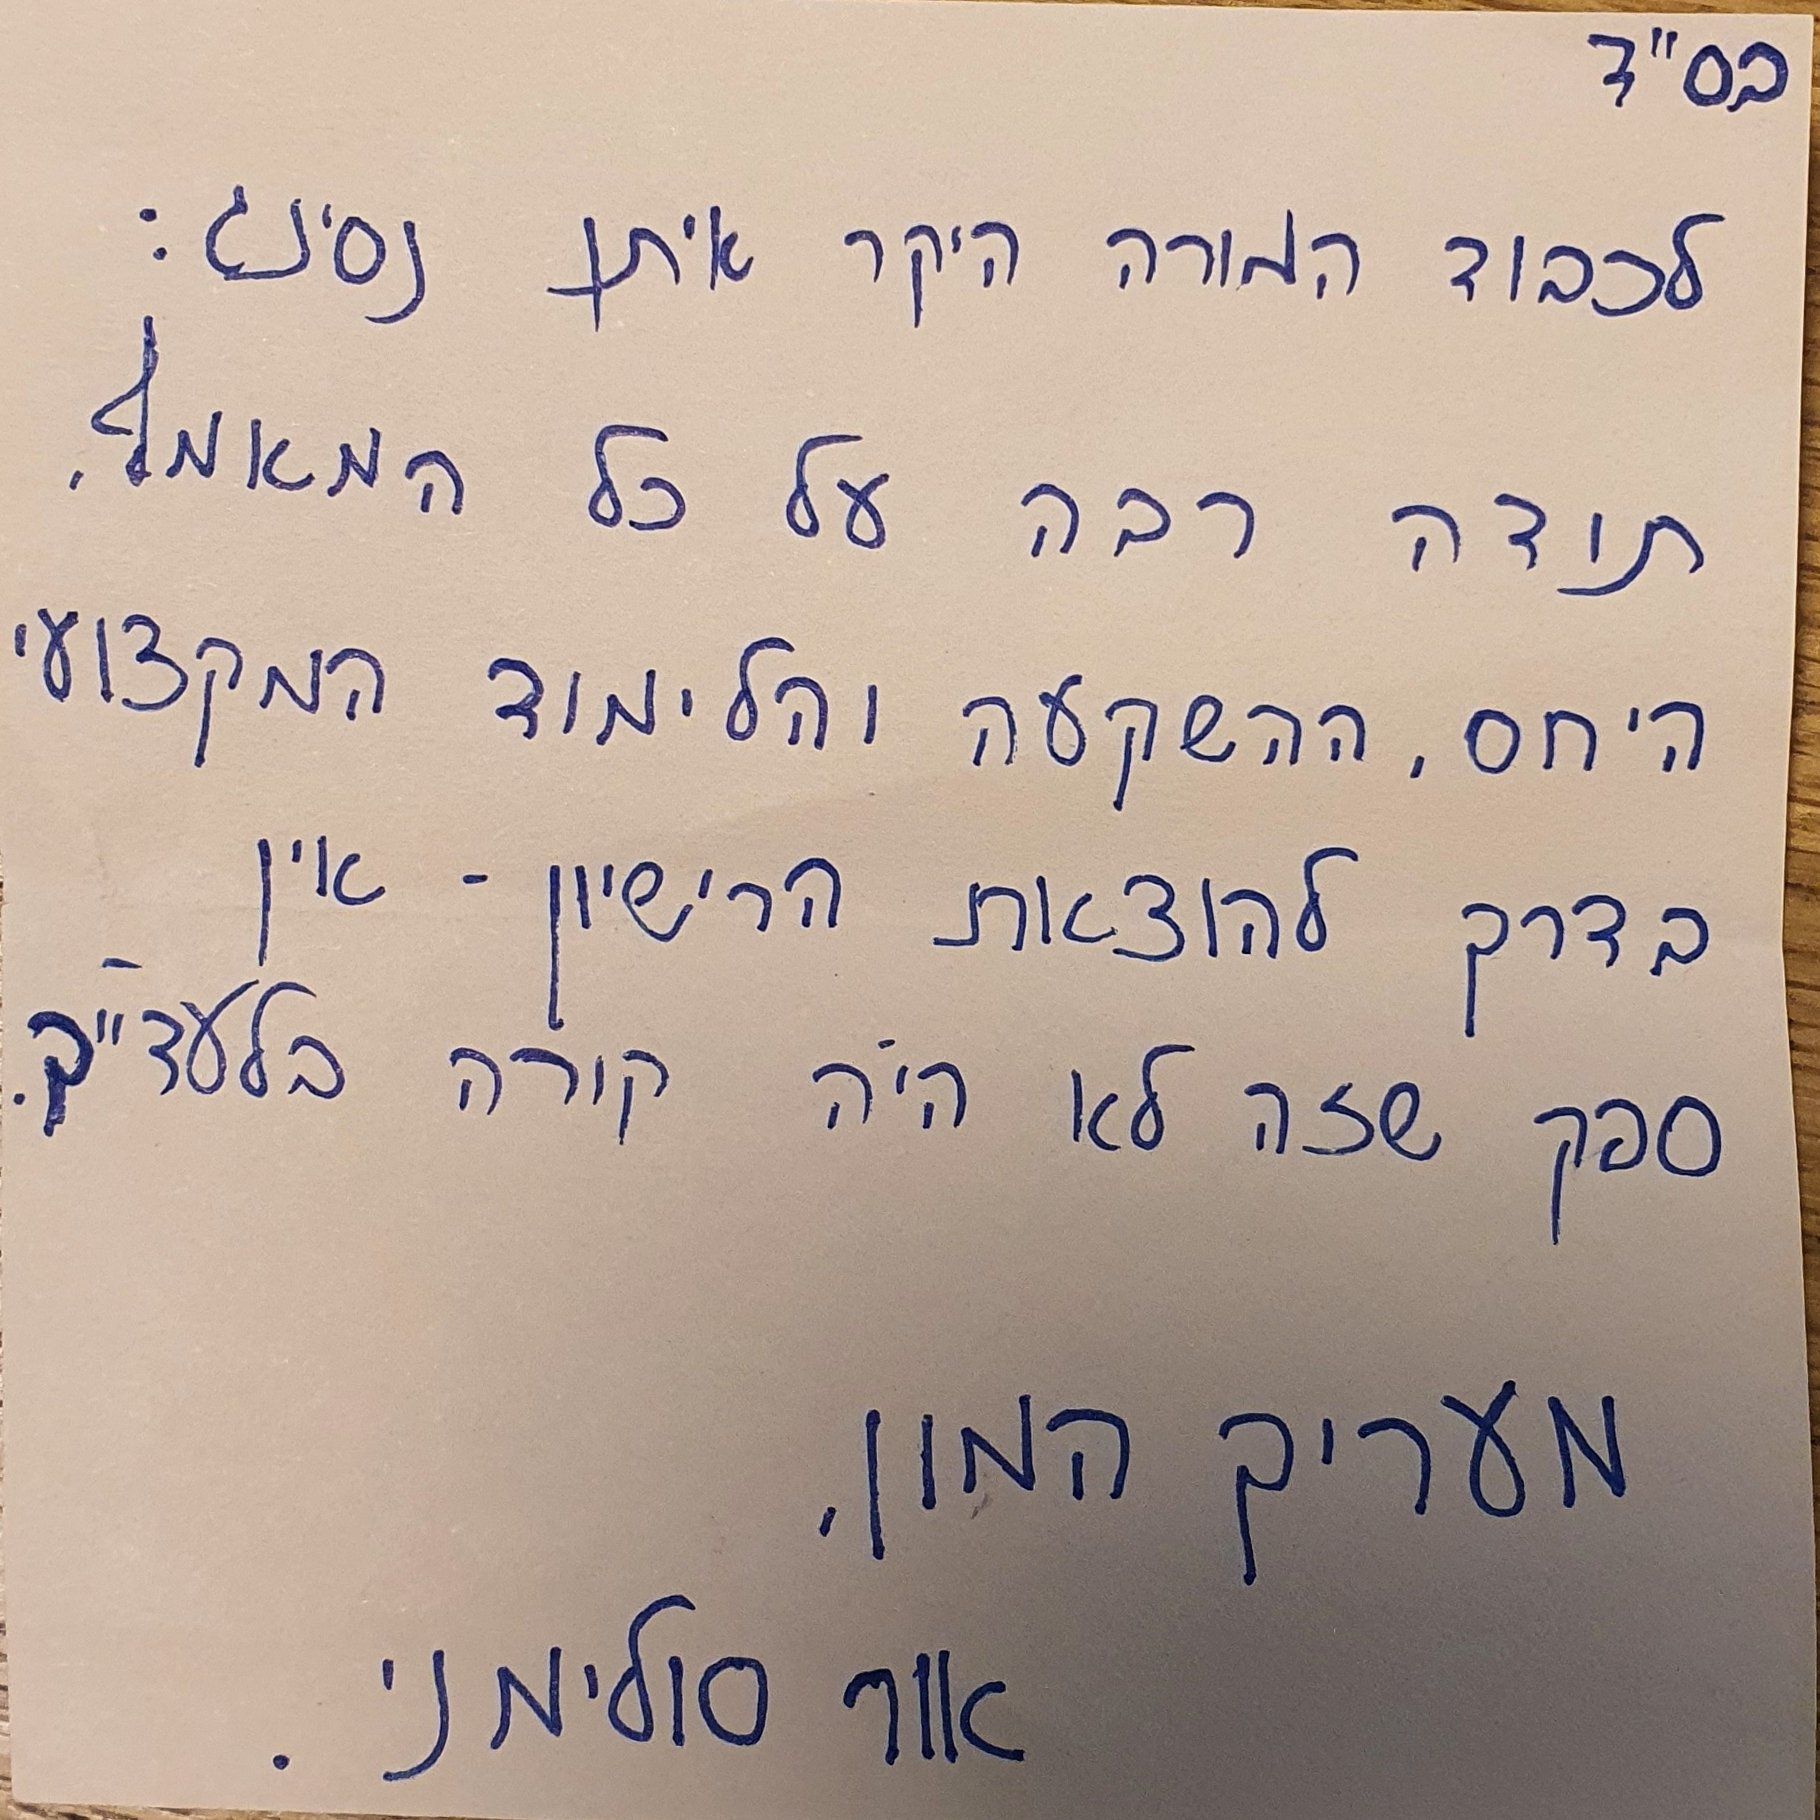 בס"ד
לכבוד המורה היקר איתן נסינג:
תודה רבה על כל המאמץ,
היחס, ההשקעה והלימוד המקצועי
בדרך להוצאת הרישיון - אין
ספק שזה לא היה קורה בלעד"ך.
מעריך המון,
אור סולימני.